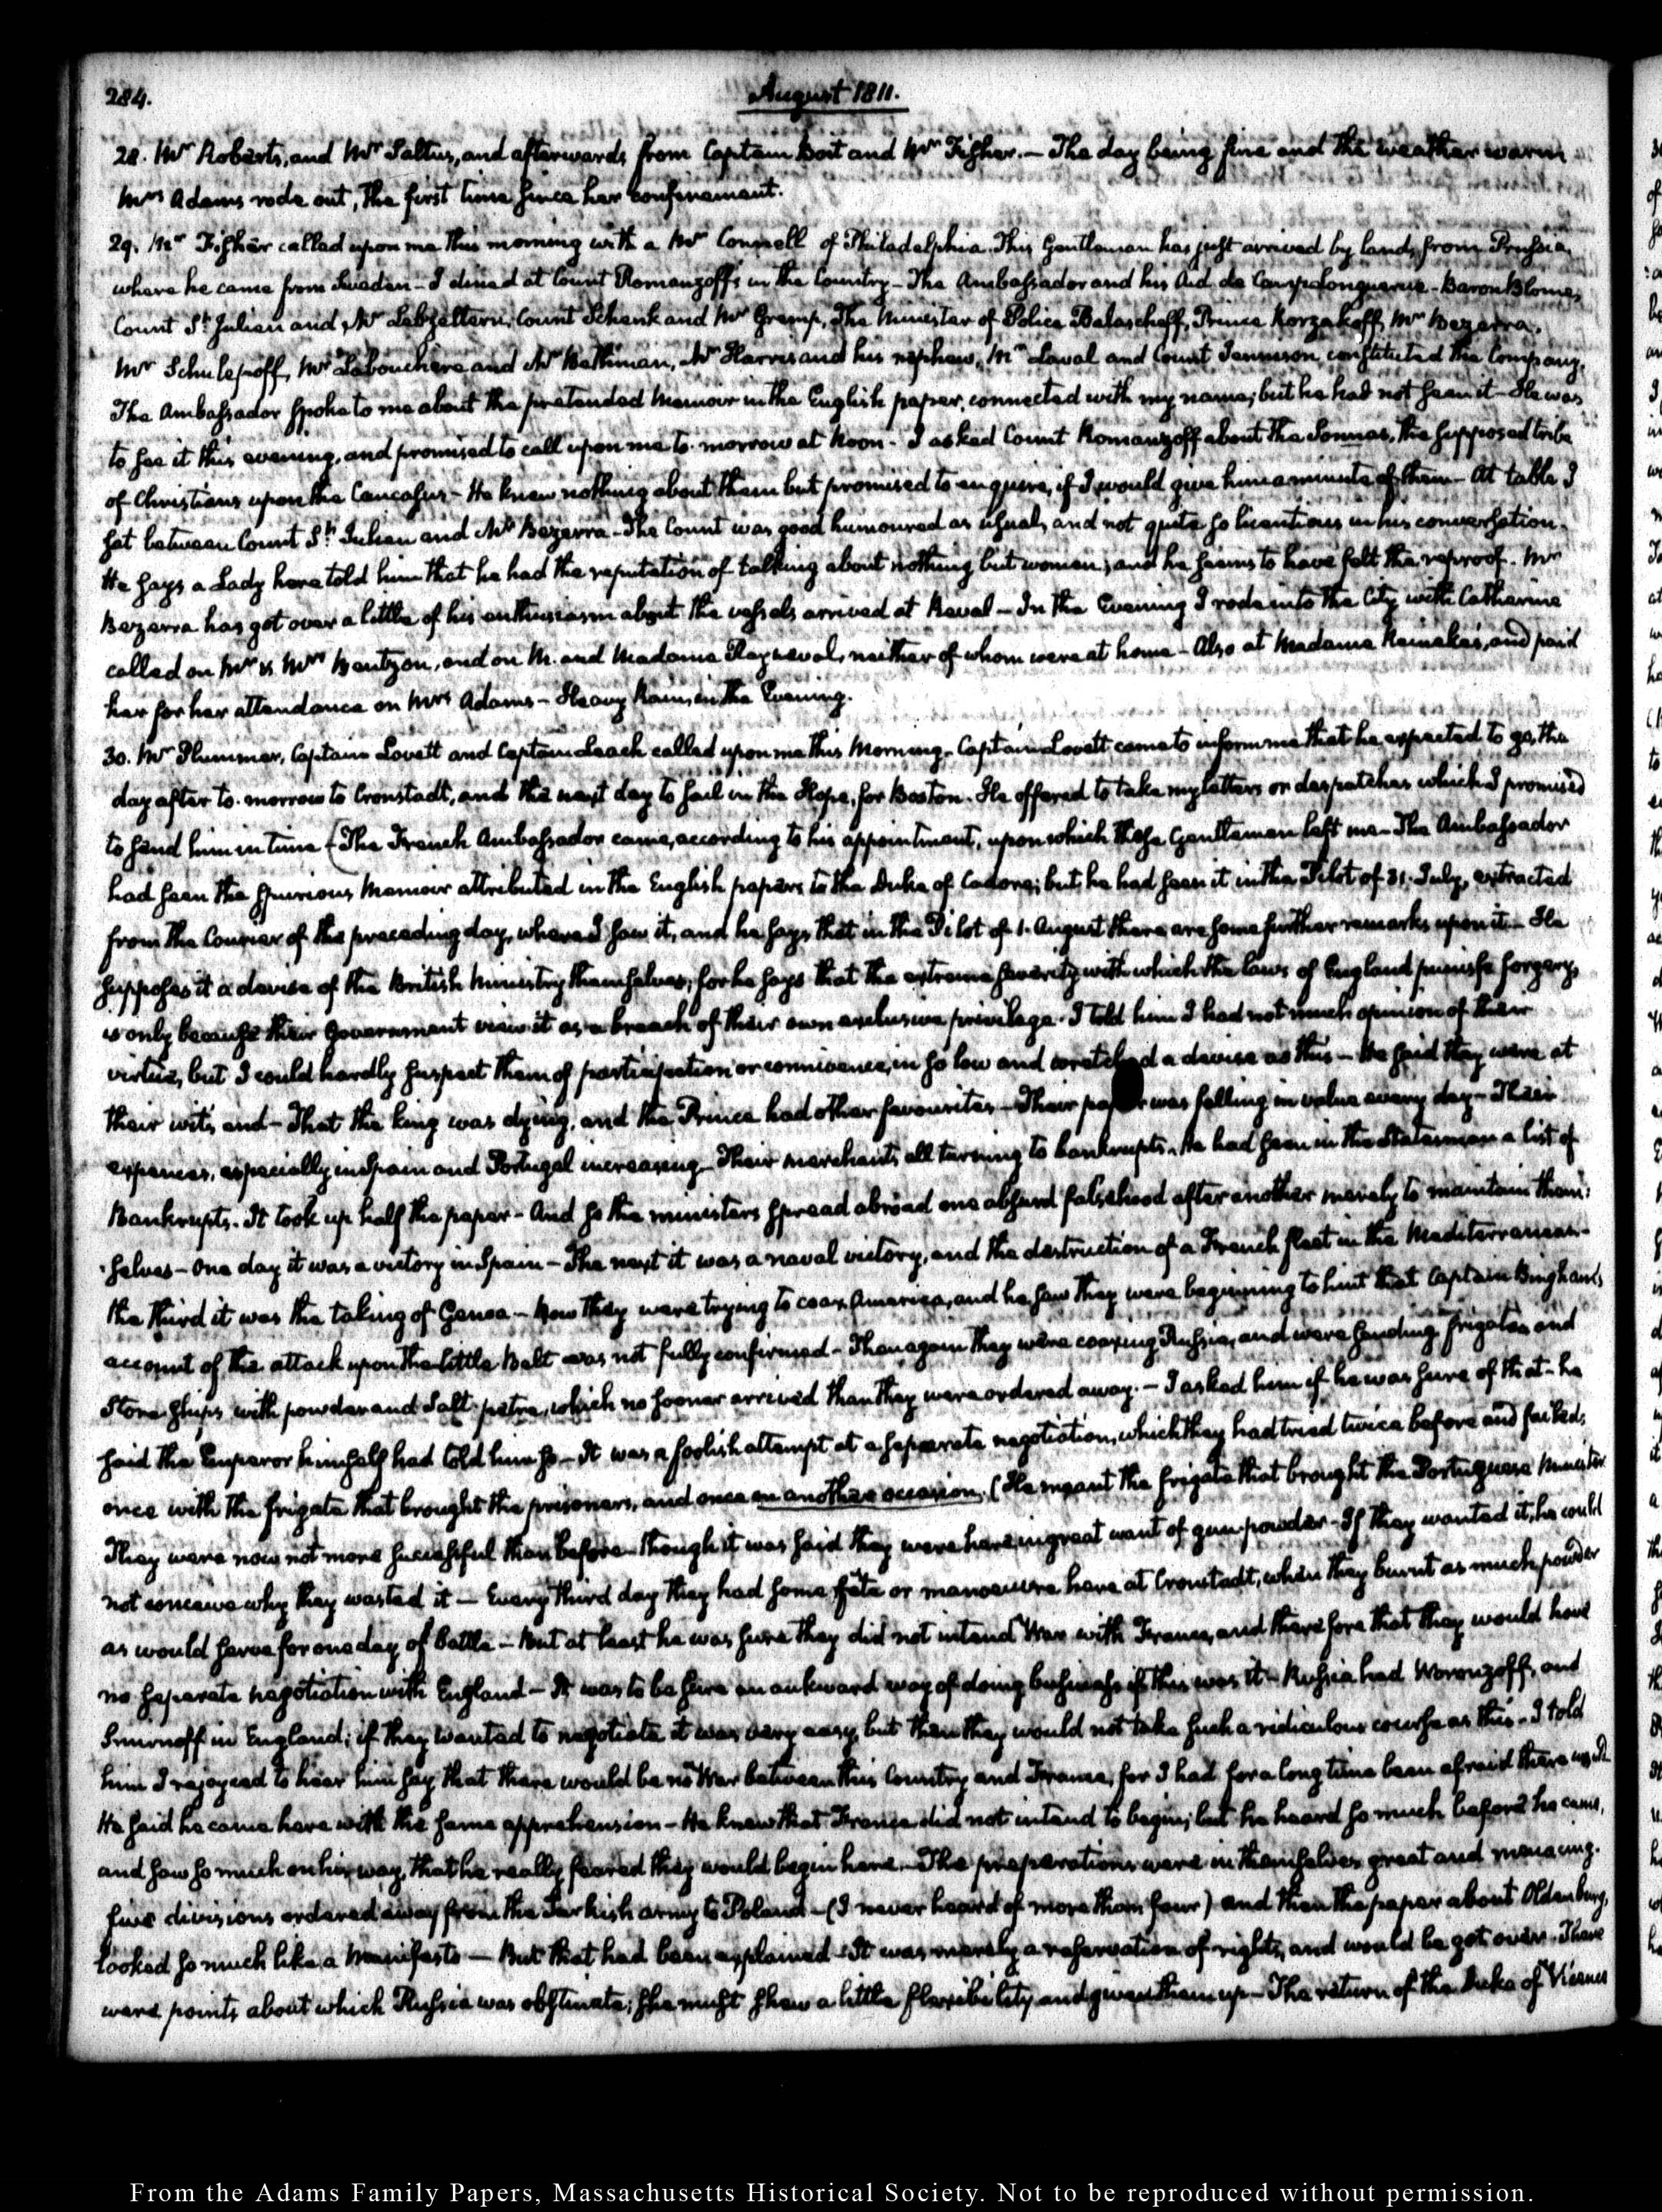 284.
August 1811.
28. Mr Roberts, and Mr Saltus, and afterwards from Captain Boit and Mr Fisher. — The day being fine and the weather warm
Mrs Adams rode out, the first time since her confinement.
29. Mr Fisher called upon me this morning with a Mr Connell of Philadelphia. This Gentleman has just arrived by land, from Prussia,
where he came from Sweden — I dined at Count Romanzoff's in the Country — The Ambassador and his Aid de Camp Longuerue — Baron Blome,
Count St. Julien and Mr Lebzeltern, Count Schenk and Mr Gremp, The Minister of Police Balascheff, Prince Korzakoff, Mr Bezerra,
Mr Schulepoff, Mr Labouchere and Mr Bethman, Mr Harris and his nephew, Mr Laval and Count Jennison, constituted the Company.
The Ambassador spoke to me about the pretended Memoir in the English paper, connected with my name; but he had not seen it — He was
to see it this evening, and promised to call upon me to-morrow at Noon — I asked Count Romanzoff about the Sonnas, the supposed tribe
of Christians upon the Caucasus — He knew nothing about them but promised to enquire, if I would give him a minute of them — At table I
sat between Count St. Julien and Mr Bezerra — The Count was good humoured as usual, and not quite so licentious in his conversation.
He says a Lady here told him that he had the reputation of talking about nothing but women; and he seems to have felt the reproof. Mr
Bezerra has got over a little of his enthusiasm about the vessels arrived at Reval — In the Evening I rode into the City with Catherine
called on Mr & Mrs Bentzon, and on M. and Madame Rayneval, neither of whom were at home — Also at Madame Heineke's, and paid
her for her attendance on Mrs Adams — Heavy Rain in the Evening.
30. Mr Plummer, Captain Lovett and Captain Leach called upon me this Morning — Captain Lovett came to inform me that he expected to go, the
day after to-morrow to Cronstadt, and the next day to sail in the Hope, for Boston. He offered to take my letters or despatches which I promised
to send him in time (The French Ambassador came, according to his appointment, upon which these Gentlemen left me — The Ambassador
had seen the spurious Memoir attributed in the English papers to the Duke of Cadore; but he had seen it in the Pilot of 31. July, extracted
from the Courier of the preceding day, where I saw it, and he says that in the Pilot of 1. August there are some further remarks upon it — He
supposes it a devise of the British Ministry themselves; for he says that the extreme severity with which the laws of England punish forgery,
is only because their Government view it as a breach of their own exclusive privilege. I told him I had not much opinion of their
virtue, but I could hardly suspect them of participation or connivance, in so low and wretched a devise as this — He said they were at
their wits end — That the king was dying, and the Prince had other favourites — Their paper was falling in value every day — Their
expences, especially in Spain and Portugal increasing — Their merchants all turning to bankrupts. He had seen in the Statesman a list of
Bankrupts. It took up half the paper — And so the ministers spread abroad one absurd falsehood after another merely to maintain them:
:selves — One day it was a victory in Spain — The next it was a naval victory, and the destruction of a French fleet in the Mediterranean —
the third it was the taking of Genoa — Now they were trying to coax America, and he saw they were beginning to hint that Captain Bingham's
account of the attack upon the Little Belt was not fully confirmed — Then again they were coaxing Russia, and were sending frigates and
Store Ships with powder and Salt-petre, which no sooner arrived than they were ordered away. — I asked him if he was sure of that — he
said the Emperor himself had told him so — It was a foolish attempt at a separate negotiation, which they had tried twice before and failed;
once with the frigate that brought the prisoners, and once on another occasion, (He meant the frigate that brought the Portuguese Minister
They were now not more successful than before — though it was said they were here in great want of gun-powder — If they wanted it, he could
not conceive why they wasted it — Every third day they had some fête or manoeuvre here at Cronstadt, when they burnt as much powder
as would serve for one day of battle — But at least he was sure they did not intend War with France, and therefore that they would have
no separate negotiation with England — It was to be sure an aukward way of doing business if this was it — Russia had Woronzoff, and
Smirnoff in England; if they wanted to negotiate it was very easy, but then they would not take such a ridiculous course as this — I told
him I rejoyced to hear him say that there would be no War between this Country and France, for I had for a long time been afraid there would
He said he came here with the same apprehension — He knew that France did not intend to begin; but he heard so much before he came,
and saw so much on his way, that he really feared they would begin here. — The preparations were in themselves great and menacing.
five divisions ordered away from the Turkish army to Poland — (I never heard of more than four) and then the paper about Oldenburg,
looked so much like a Manifesto — But that had been explained — It was merely a reservation of rights, and would be got over. There
were points about which Russia was obstinate; she must shew a little flexibility and give them up — The return of the Duke of Vicenza
From the Adams Family Papers, Massachusetts Historical Society. Not to be reproduced without permission.